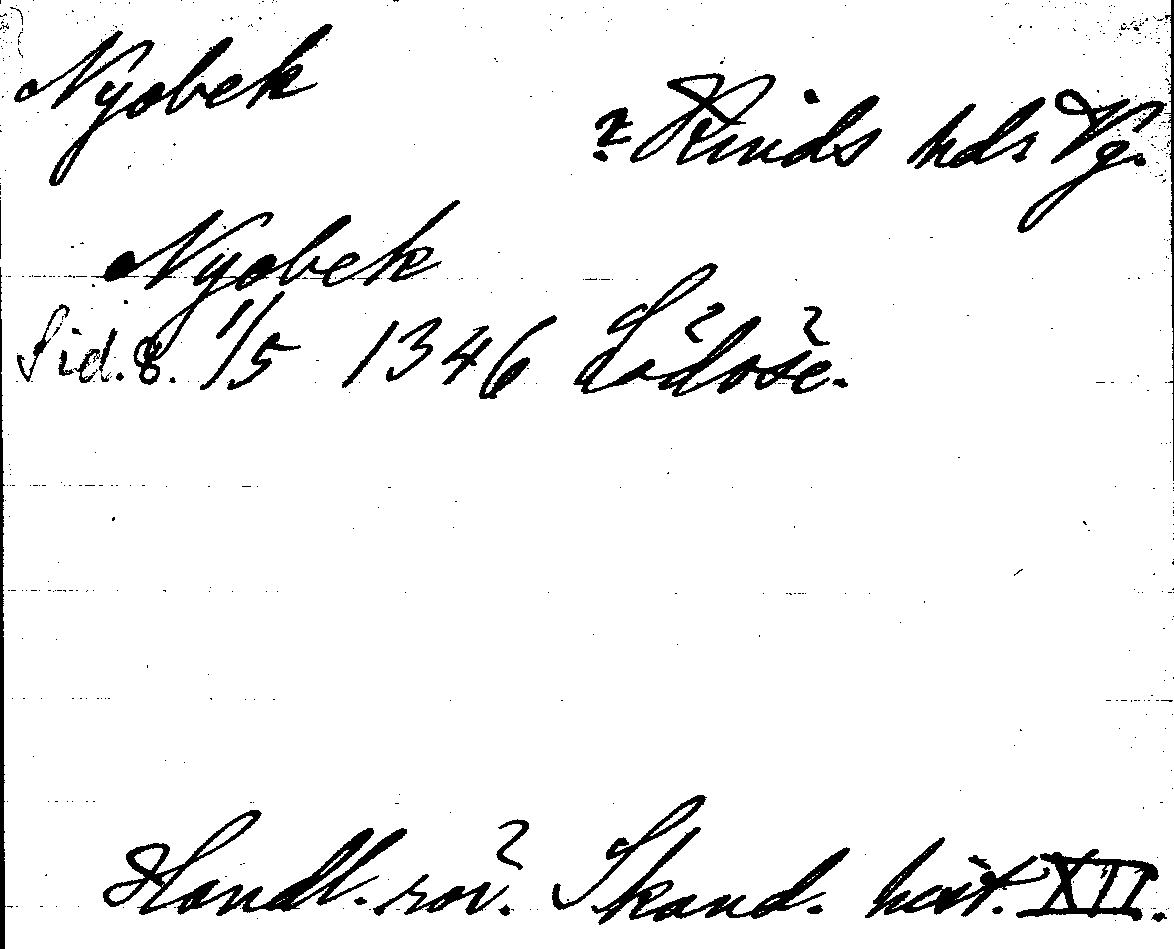 Nyobek
? Kinds hds Vg.
Nyobek
Sid. 8. 1/5 1346 Lödöse.
Handl. rör. Skand. hist. XII.